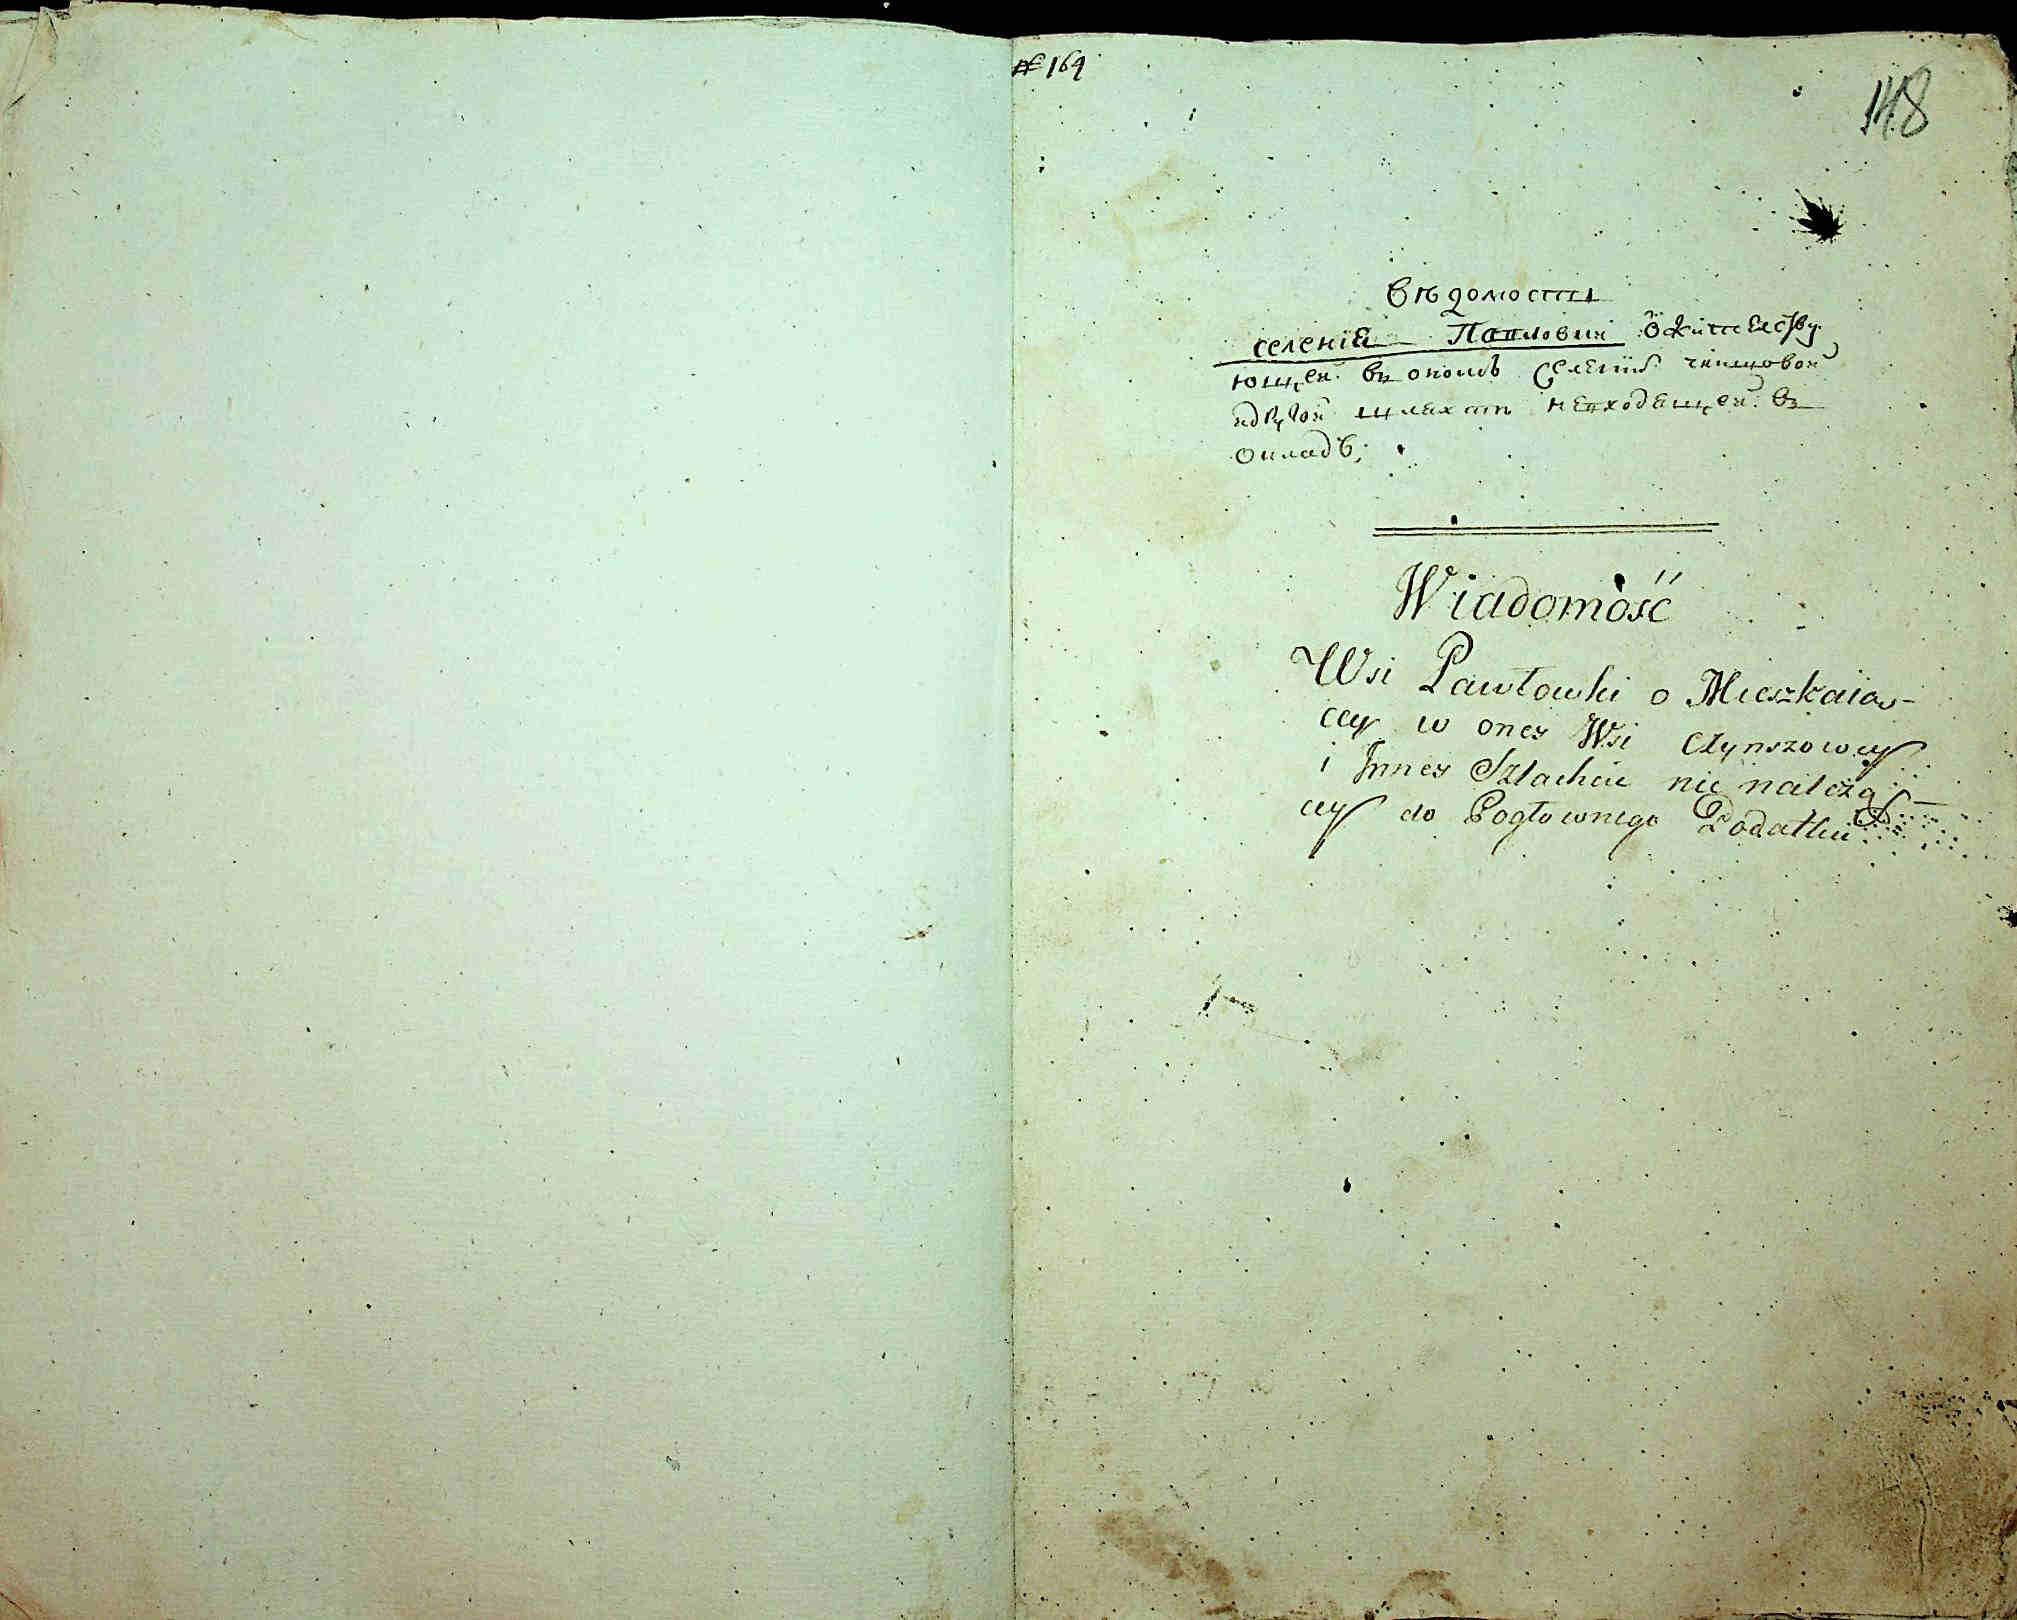 № 164
148
Вѣдомость
селенія Павловки о жителству
ющей въ ономъ селеніи чиншовой
и другой шляхты невходящей въ
окладъ;
Wiadomość
Wsi Pawłowki o Mieszkaią-
cey w oney Wsi Czynszowey
i Inney Szlachcie nie należą-
cey do Pogłownego Podatku